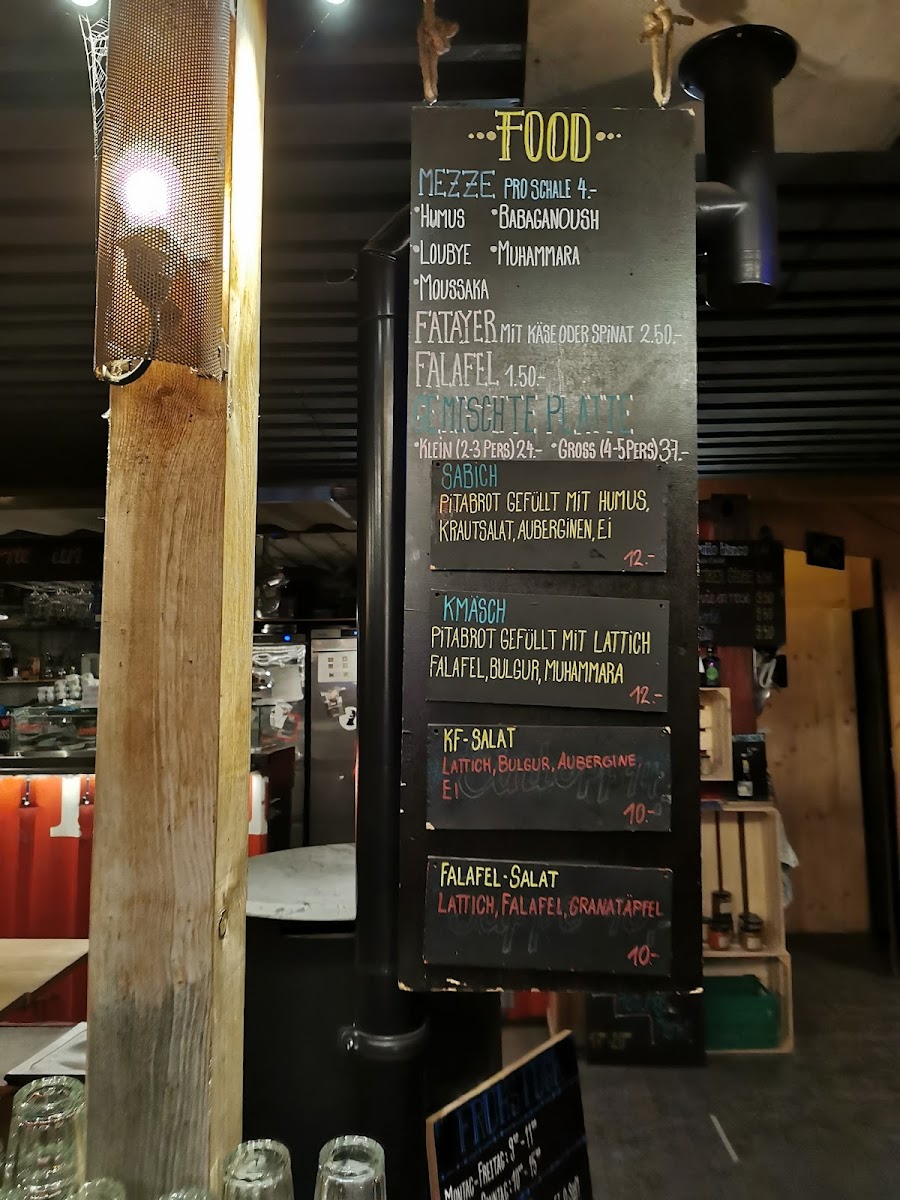 FOOD
MEZZE PRO SCHALE 4.-
•HUMUS •BABAGANOUSH
•LOUBYE •MUHAMMARA
•MOUSSAKA
FATAYER MIT KÄSE ODER SPINAT 2.50.-
FALAFEL 1.50.-
GEMISCHTE PLATTE
•KLEIN (2-3 PERS) 24.- •GROSS (4-5 PERS) 37.-
SABICH
PITABROT GEFÜLLT MIT HUMUS,
KRAUTSALAT, AUBERGINEN, EI
12.-
KMÄSCH
PITABROT GEFÜLLT MIT LATTICH
FALAFEL, BULGUR, MUHAMMARA
12.-
KF-SALAT
LATTICH, BULGUR, AUBERGINE,
EI
10.-
FALAFEL-SALAT
LATTICH, FALAFEL, GRANATÄPFEL
10.-
MONTAG-FREITAG: 9°°-11°°